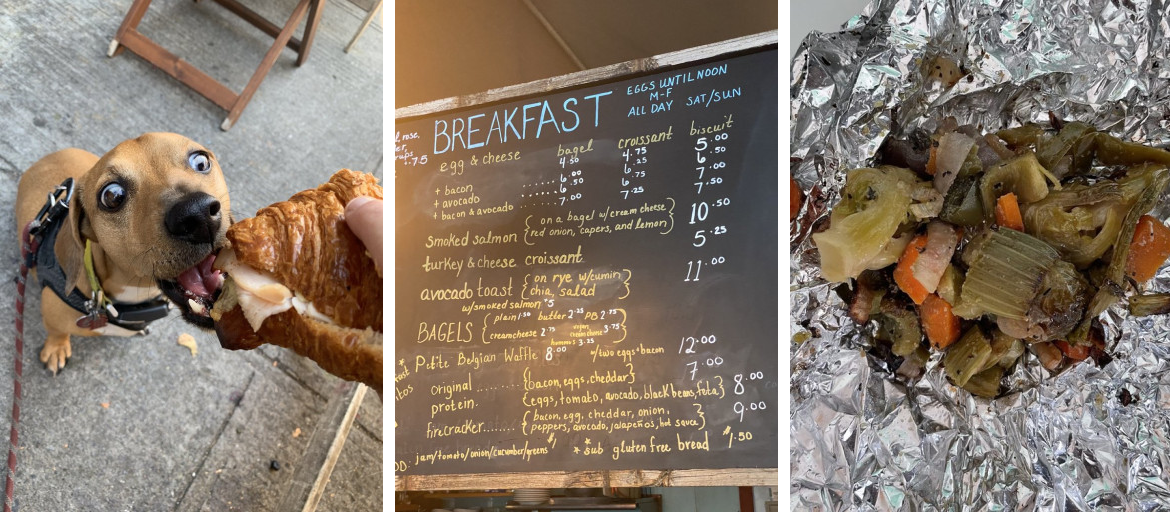 BREAKFAST
EGGS UNTIL NOON
M-F
ALL DAY SAT/SUN
.75
egg & cheese bagel croissant biscuit
4.50 4.75 5.00
+ bacon ...... 6.00 6.25 6.50
+ avocado ....... 6.50 6.75 7.00
+ bacon & avocado ....... 7.00 7.25 7.50
smoked salmon {on a bagel w/cream cheese
red onion, capers, and lemon} 10.50
turkey & cheese croissant 5.25
avocado toast {on rye w/cumin
chia, salad} 11.00
w/smoked salmon $5
BAGELS {plain 1.50 butter 2.25 PB 2.75
creamcheese 2.75 cream cheese 3.75
hummus 3.25}
Petite Belgian Waffle 8.00 w/two eggs+bacon 12.00
original ......... {bacon, eggs, cheddar} 7.00
protein. {eggs, tomato, avocado, black beans, feta} 8.00
firecracker....... {bacon, egg, cheddar, onion,
peppers, avocado, jalapeños, hot sauce} 9.00
DD: jam/tomato/onion/cucumber/greens $1
* sub gluten free bread $1.50